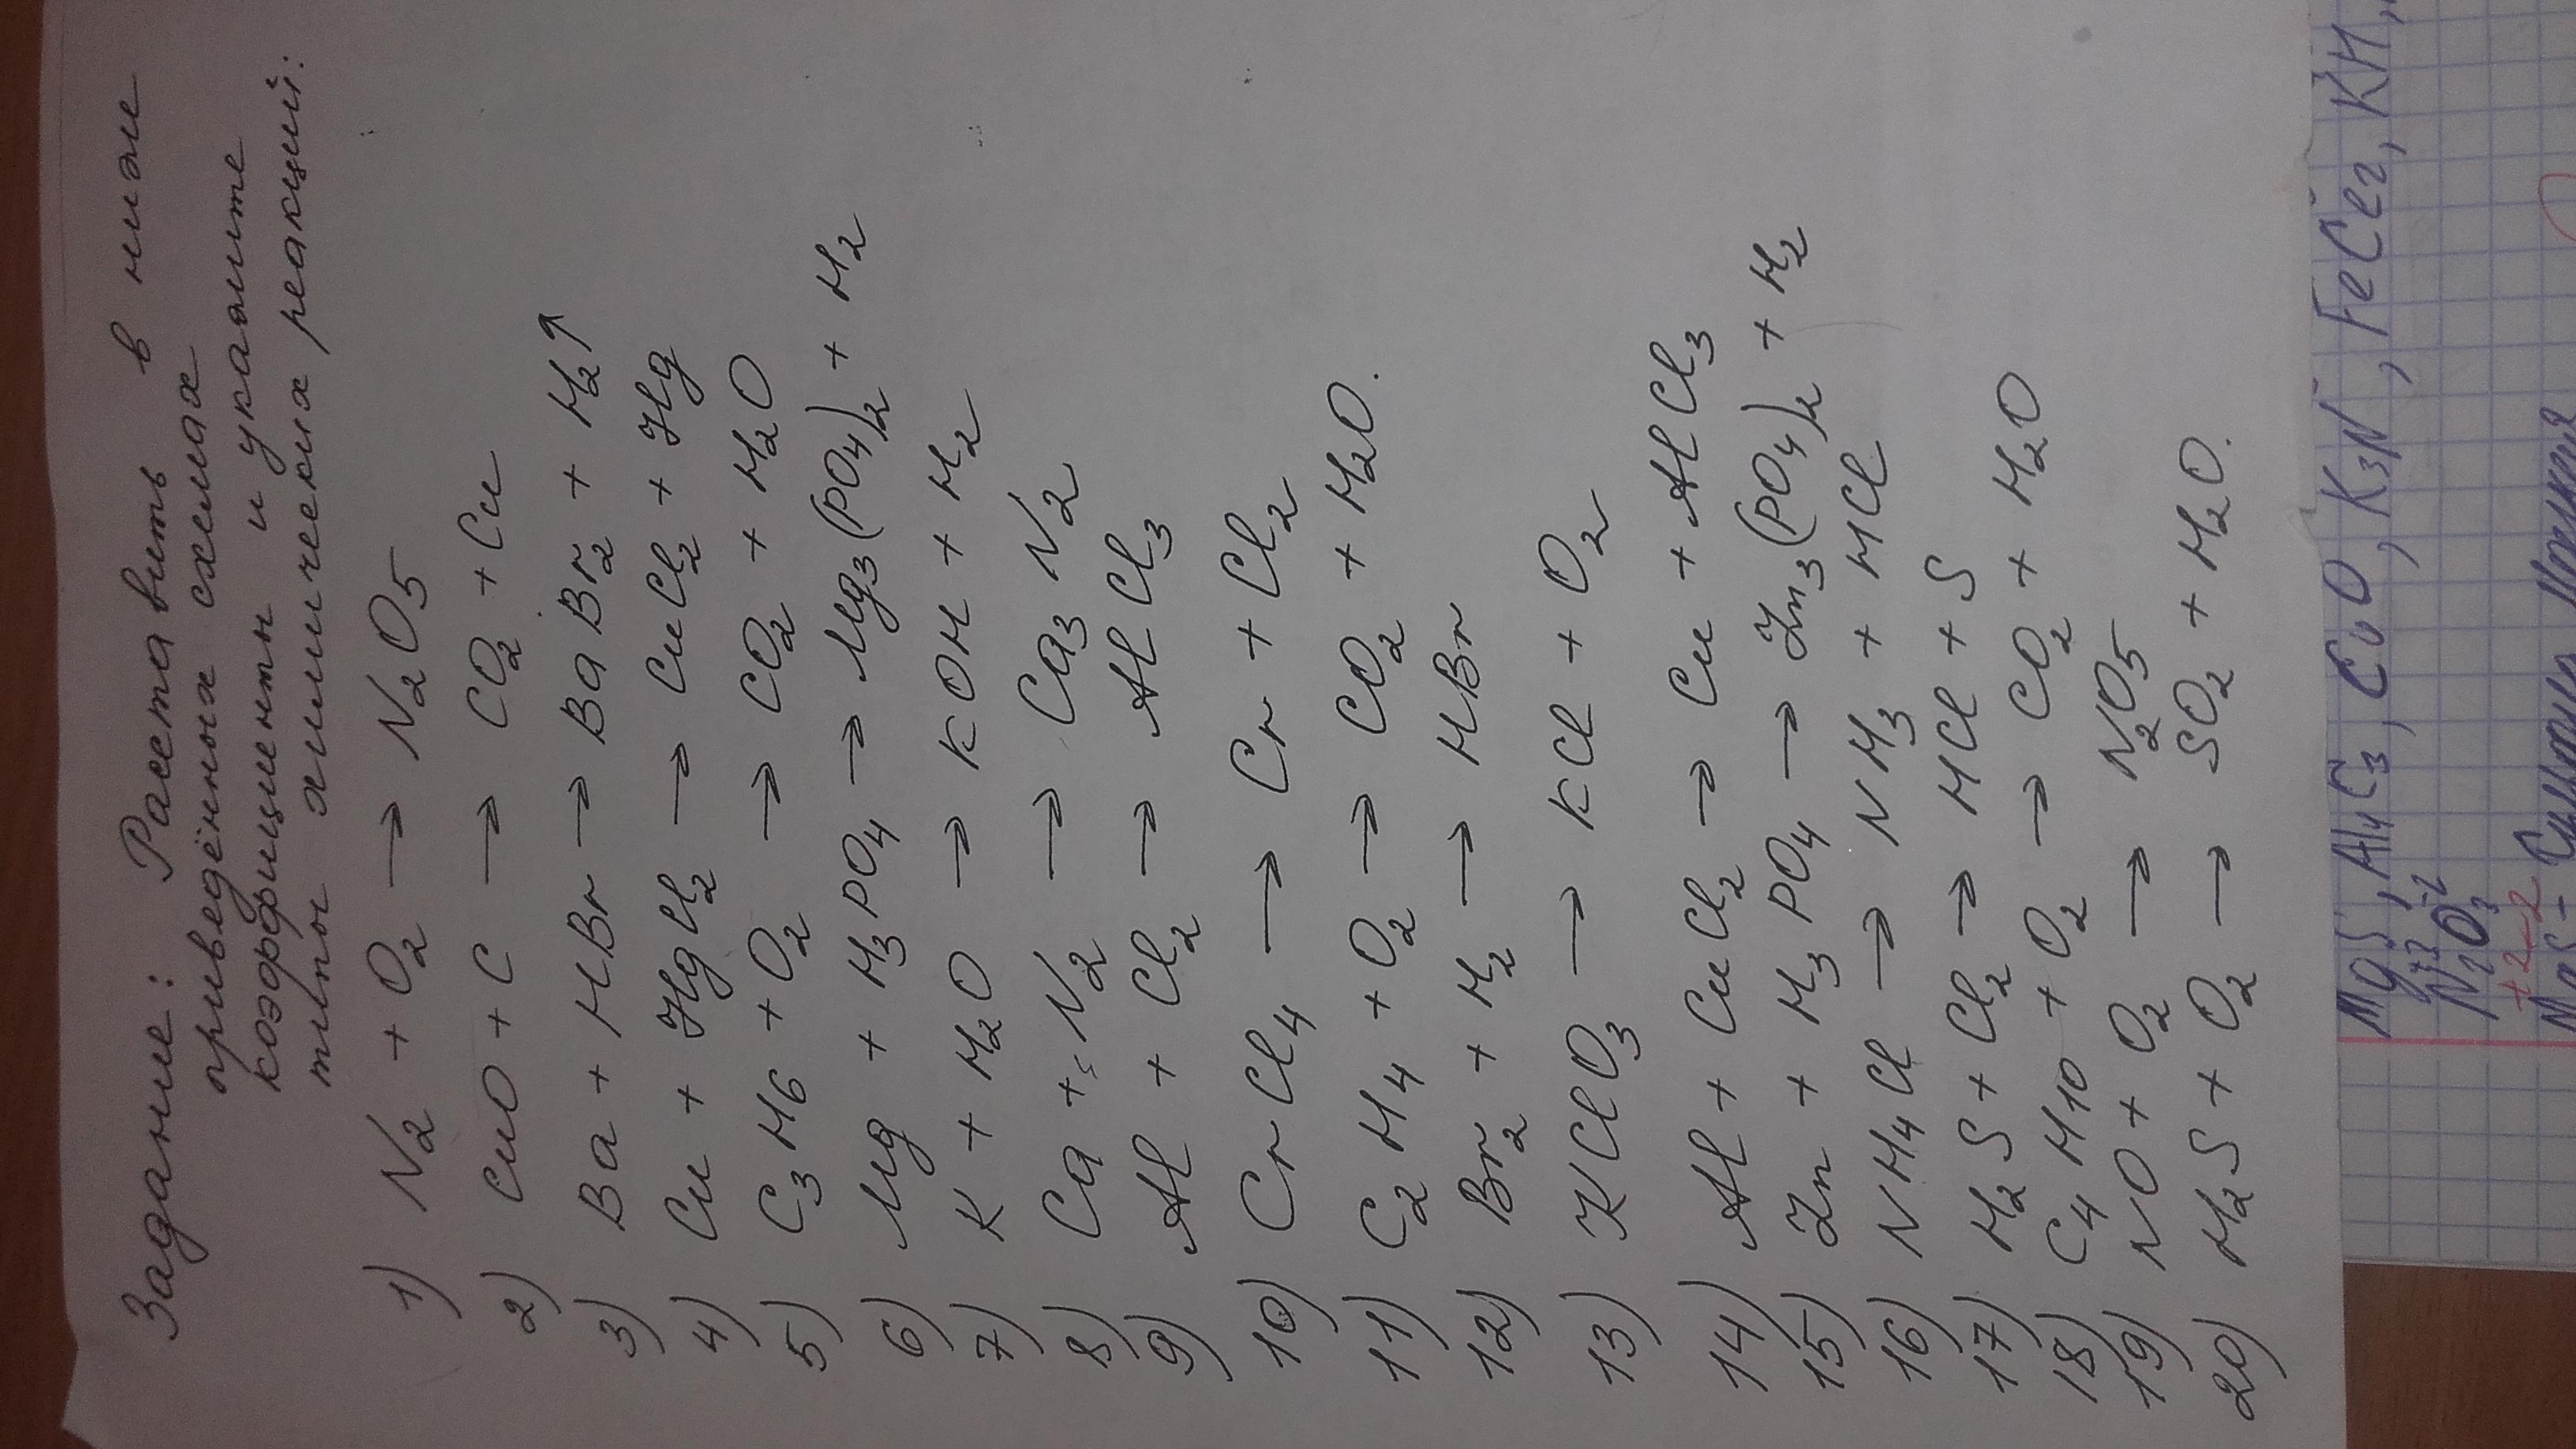 Задание: Расставить в ниже
приведённых схемах
коэффициенты и укажите
типы химических реакций:
1) N₂ + O₂ → N₂O₅
2) CuO + C → CO₂ + Cu
3) Ba + HBr → BaBr₂ + H₂↑
4) Cu + HgCl₂ → CuCl₂ + Hg
5) C₃H₆ + O₂ → CO₂ + H₂O
6) Mg + H₃PO₄ → Mg₃(PO₄)₂ + H₂
7) K + H₂O → KOH + H₂
8) Ca + N₂ → Ca₃N₂
9) Al + Cl₂ → AlCl₃
10) CrCl₄ → Cr + Cl₂
11) C₂H₄ + O₂ → CO₂ + H₂O.
12) Br₂ + H₂ → HBr
13) KClO₃ → KCl + O₂
14) Al + CuCl₂ → Cu + AlCl₃
15) Zn + H₃PO₄ → Zn₃(PO₄)₂ + H₂
16) NH₄Cl → NH₃ + HCl
17) H₂S + Cl₂ → HCl + S
18) C₄H₁₀ + O₂ → CO₂ + H₂O
19) NO + O₂ → N₂O₅
20) H₂S + O₂ → SO₂ + H₂O.
MgS, Al₄C₃, CuO, K₃N, FeCl₂, KH,
+3 -2
N₂O₃
+2 -2
MgS -